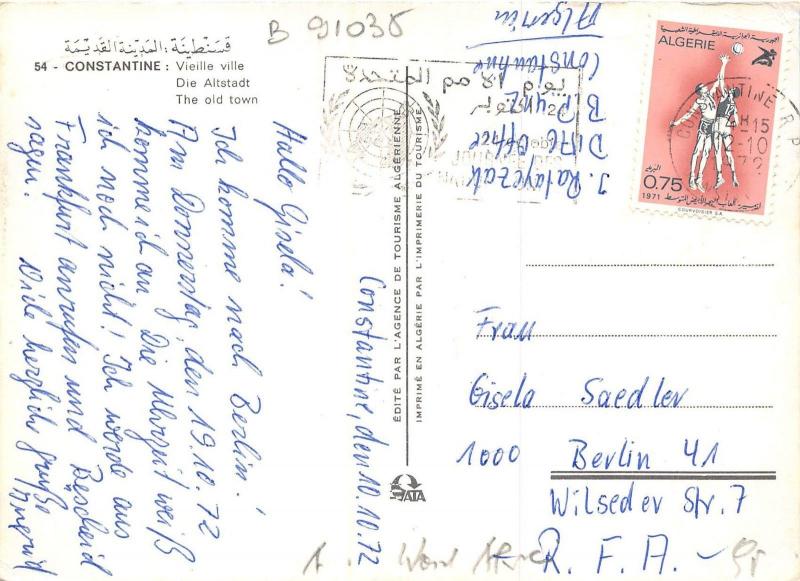 B 91038
قسنطينة: المدينة القديمة
54 - CONSTANTINE : Vieille ville
Die Altstadt
The old town
Hallo Gisela!
Ich komme nach Berlin!
Am Donnerstag, den 19.10.72
komme ich an. Die Uhrzeit weiß
ich noch nicht! Ich werde aus
Frankfurt anrufen und Bescheid
sagen.
Viele herzliche Grüße
Ingrid
Constantine, den 10.10.72
ÉDITÉ PAR L'AGENCE DE TOURISME ALGÉRIENNE
IMPRIMÉ EN ALGÉRIE PAR L'IMPRIMERIE DU TOURISME
ATA
Constantine
Algerien
يوم الأمم المتحدة
JOURNEE DES
CONSTANTINE R.P.
15
-10
الجمهورية الجزائرية الديمقراطية الشعبية
ALGERIE
البريد
0.75
1971
COURVOISIER S.A.
Frau
Gisela Saedler
1000 Berlin 41
Wilseder Str. 7
R.F.A.